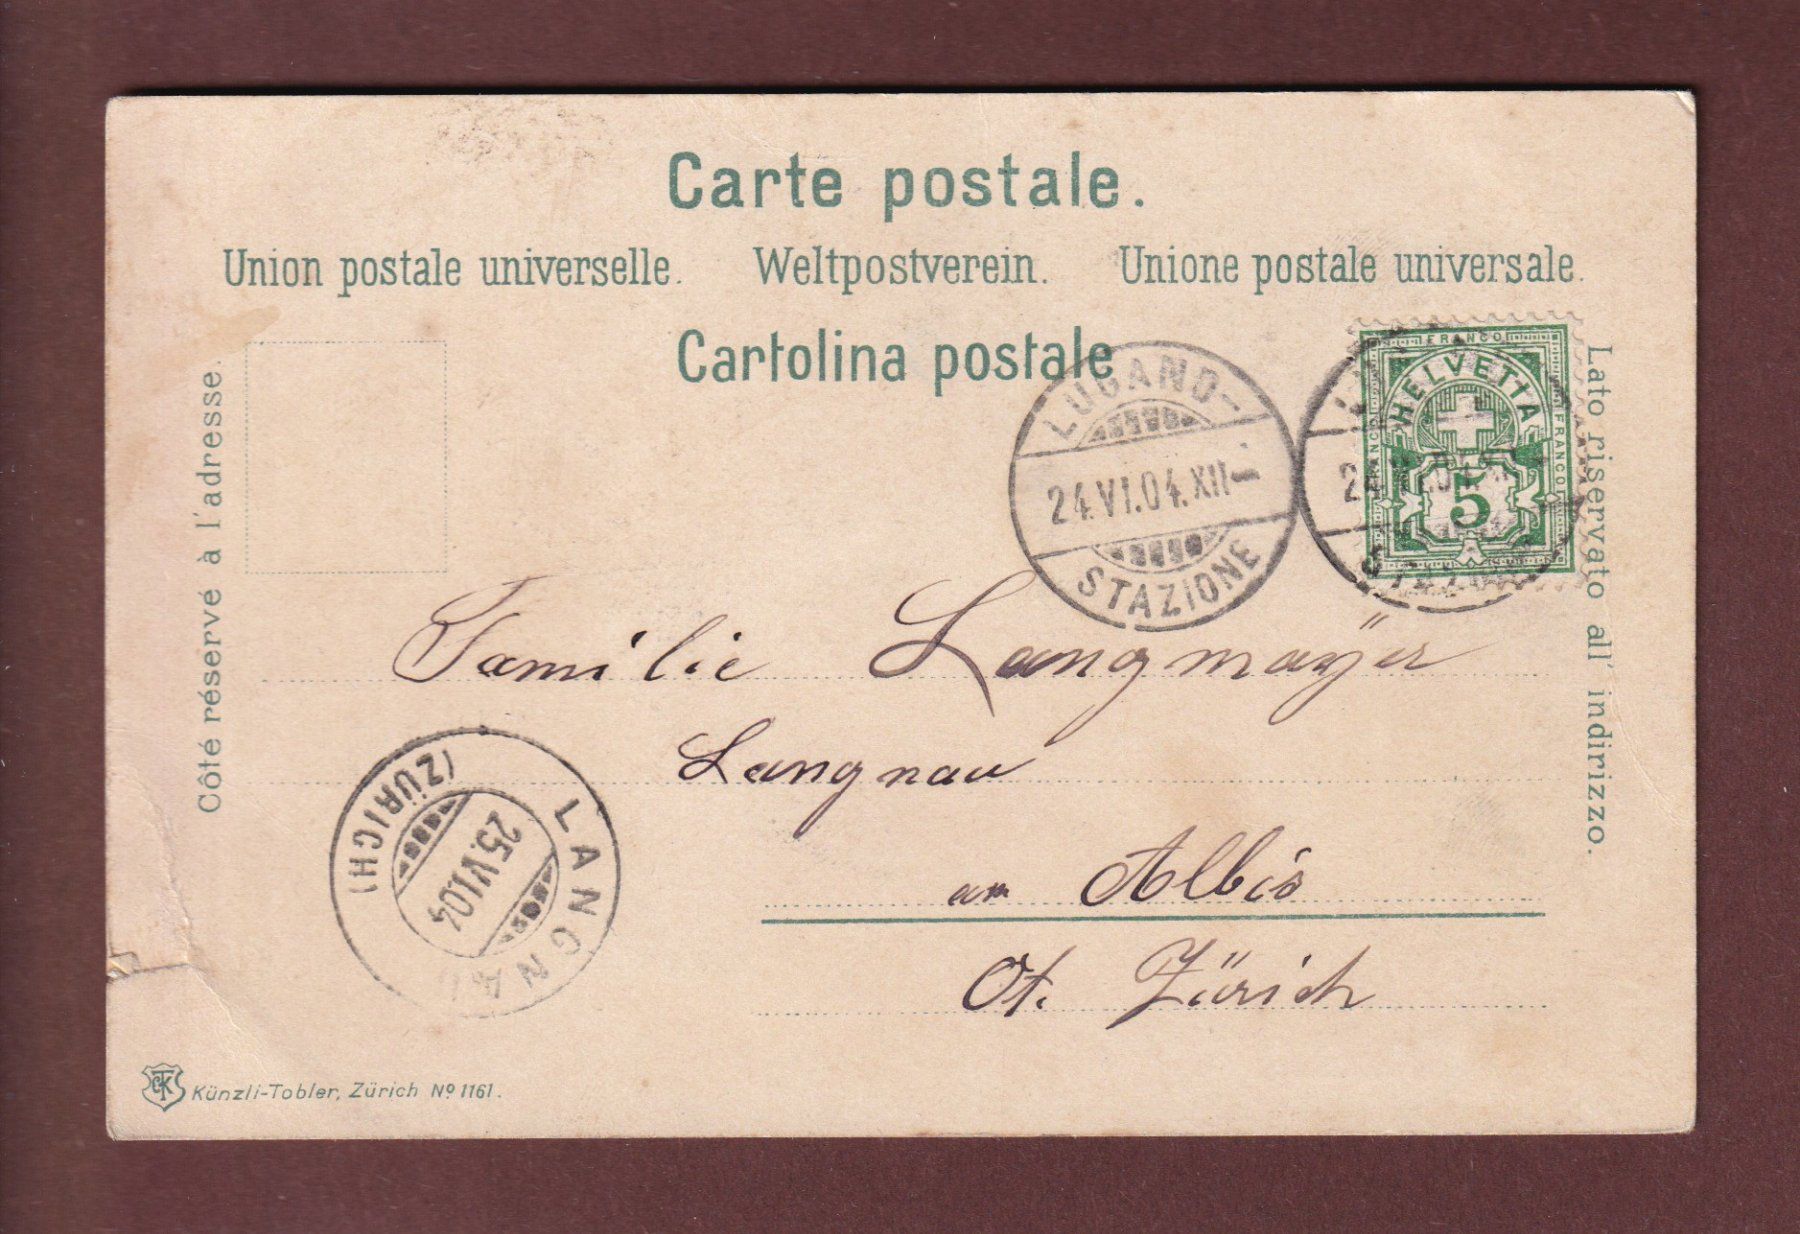 Carte postale.
Union postale universelle. Weltpostverein. Unione postale universale.
Cartolina postale
Côté réservé à l'adresse.
Lato riservato all' indirizzo.
LUGANO-
24.VI.04.XII-
STAZIONE
FRANCO
HELVETIA
FRANCO
FRANCO
5
Familie Langmayer
Langnau
am Albis
Ct. Zürich
LANGNAU
25.VI.04
(ZÜRICH)
Künzli-Tobler, Zürich No 1161.